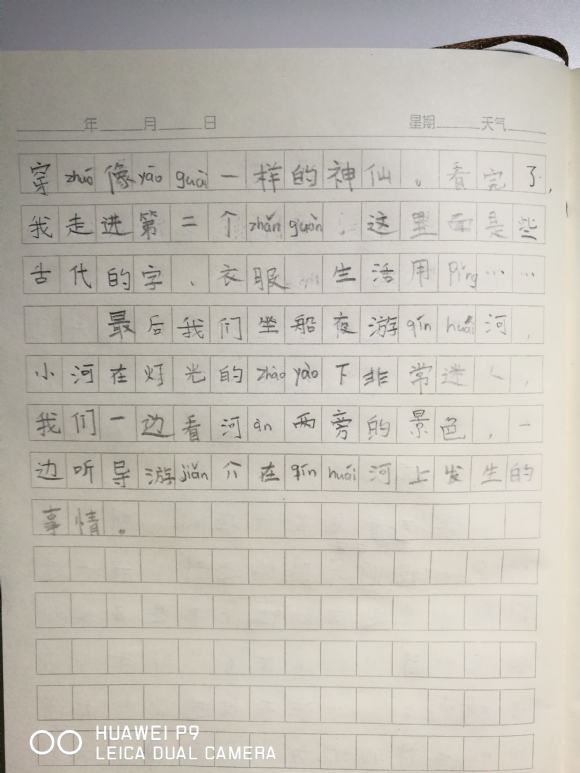 年 月 日 星期 天气
穿zhuó像yāo guài一样的神仙。看完了,
我走进第二个zhǎn guǎn,这里面是些
古代的字、衣服 生活用Pǐng……
最后我们坐船夜游qín huái河,
小河在灯光的zhào yào下非常迷人,
我们一边看河àn两旁的景色,一
边听导游jiǎn介在qín huái河上发生的
事情。
HUAWEI P9
LEICA DUAL CAMERA